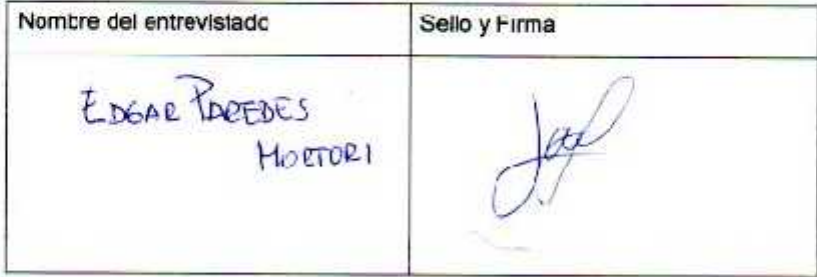 Nombre del entrevistado
Sello y Firma
EDGAR PAREDES
MORTORI